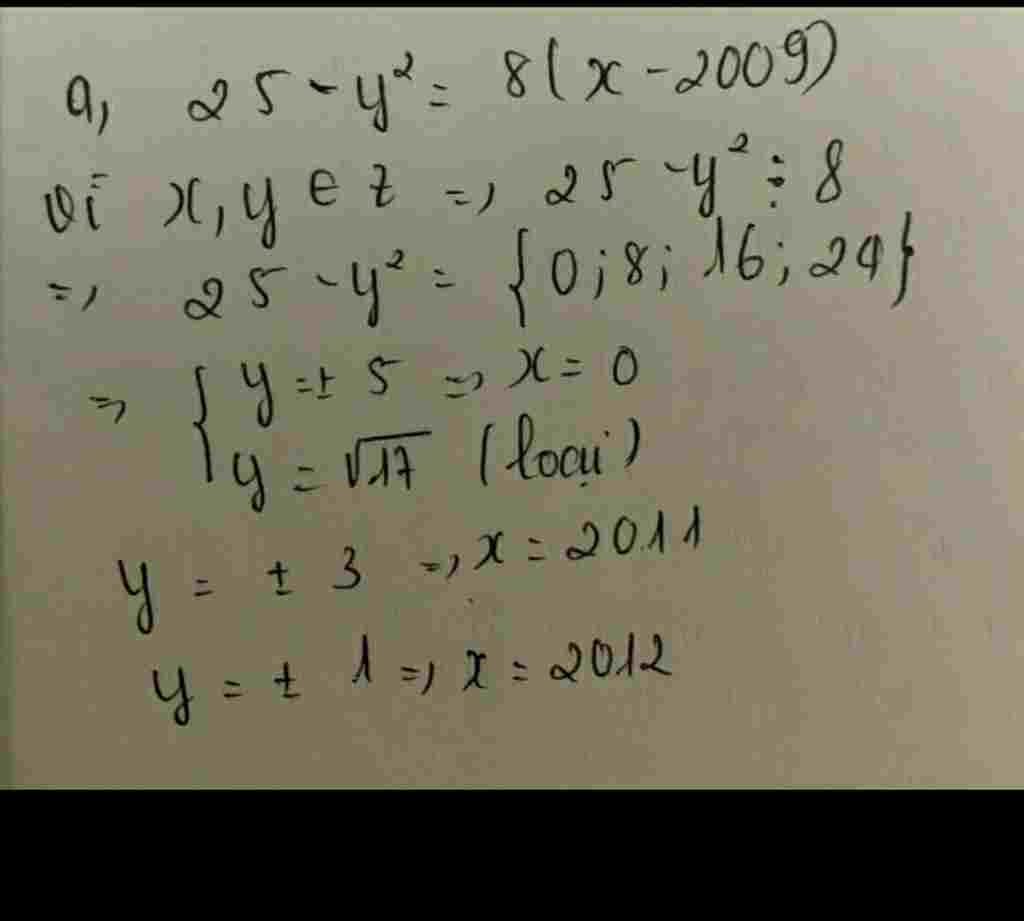 a, 25 - y² = 8(x - 2009)
Vì x, y ∈ Z => 25 - y² ⋮ 8
=> 25 - y² = {0; 8; 16; 24}
=> { y = ± 5 => x = 0
y = √17 (loại)
y = ± 3 => x = 2011
y = ± 1 => x = 2012